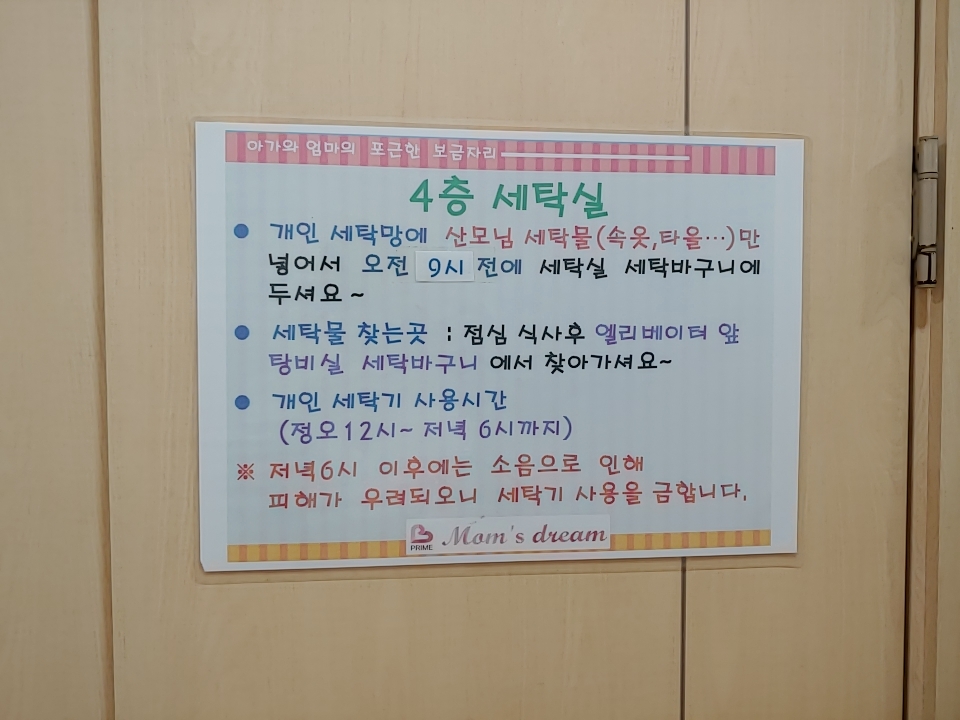 아가와 엄마의 포근한 보금자리
4층 세탁실
● 개인 세탁망에 산모님 세탁물(속옷,타올…)만
넣어서 오전 9시 전에 세탁실 세탁바구니에
두셔요~
● 세탁물 찾는곳 : 점심 식사후 엘리베이터 앞
탕비실 세탁바구니 에서 찾아가셔요~
● 개인 세탁기 사용시간
(정오12시~ 저녁 6시까지)
※ 저녁6시 이후에는 소음으로 인해
피해가 우려되오니 세탁기 사용을 금합니다.
PRIME Mom's dream